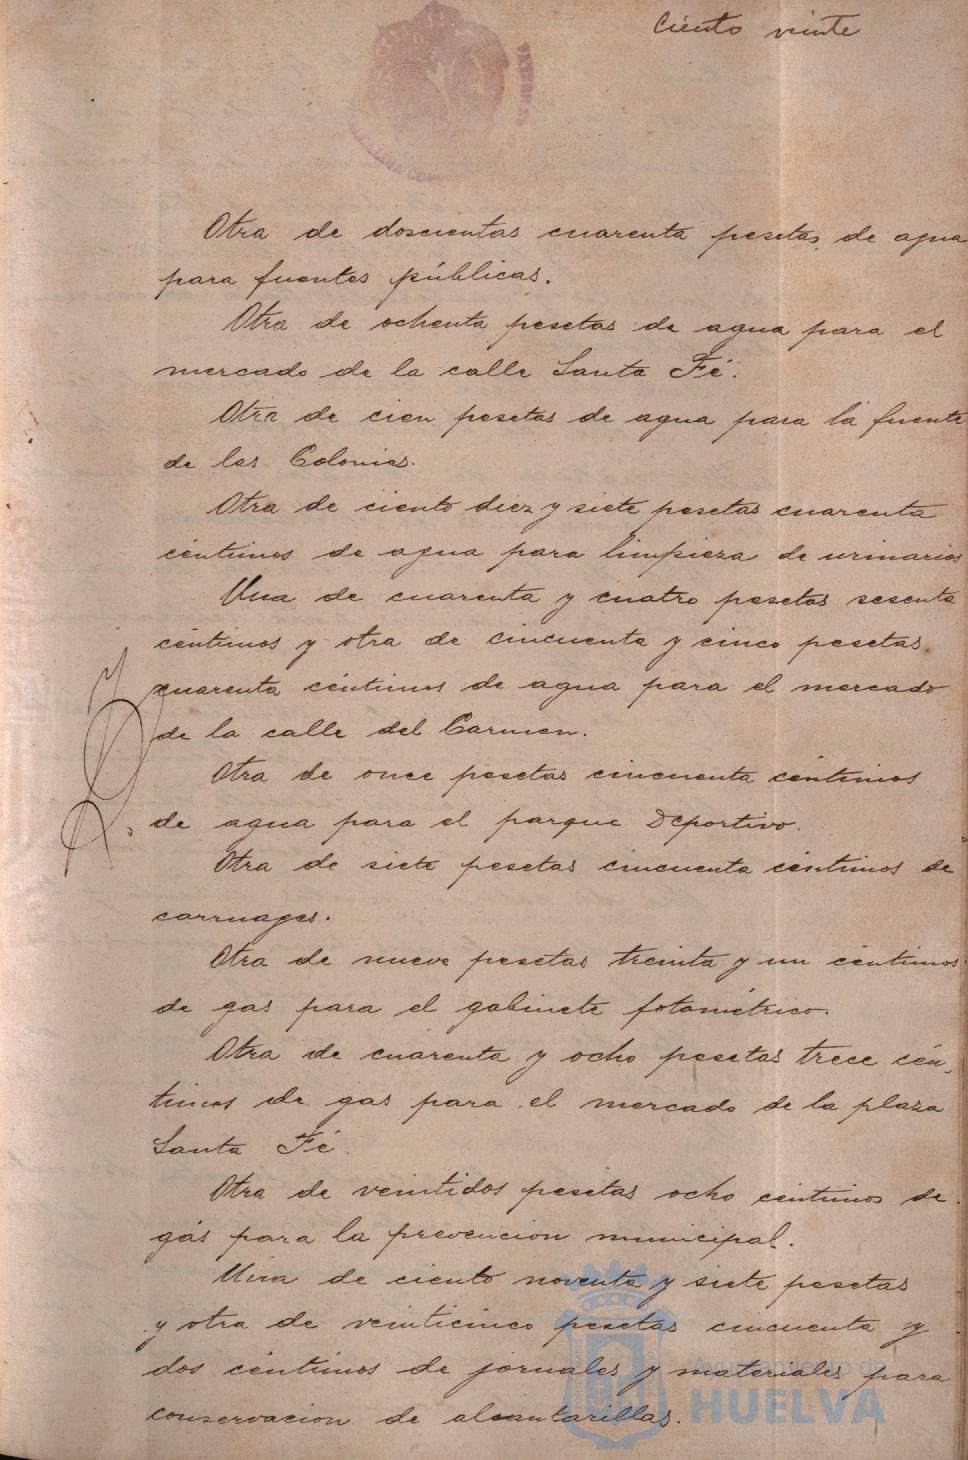 Ciento veinte
Otra de doscientas cuarenta pesetas de agua
para fuentes públicas.
Otra de ochenta pesetas de agua para el
mercado de la calle Santa Fé.
Otra de cien pesetas de agua para la fuente
de las Colonias.
Otra de ciento diez y siete pesetas cuarenta
céntimos de agua para limpieza de urinarios
Una de cuarenta y cuatro pesetas sesenta
céntimos y otra de cincuenta y cinco pesetas
cuarenta céntimos de agua para el mercado
de la calle del Carmen.
Otra de once pesetas cincuenta céntimos
de agua para el parque Deportivo.
Otra de siete pesetas cincuenta céntimos de
carruages.
Otra de nueve pesetas treinta y un céntimos
de gas para el gabinete fotométrico.
Otra de cuarenta y ocho pesetas trece cén-
timos de gas para el mercado de la plaza
Santa Fé.
Otra de veintidos pesetas ocho céntimos de
gás para la prevencion municipal.
Una de ciento noventa y siete pesetas
y otra de veinticinco pesetas cincuenta y
dos céntimos de jornales y materiales para
conservacion de alcantarillas.
Ayuntamiento de
HUELVA